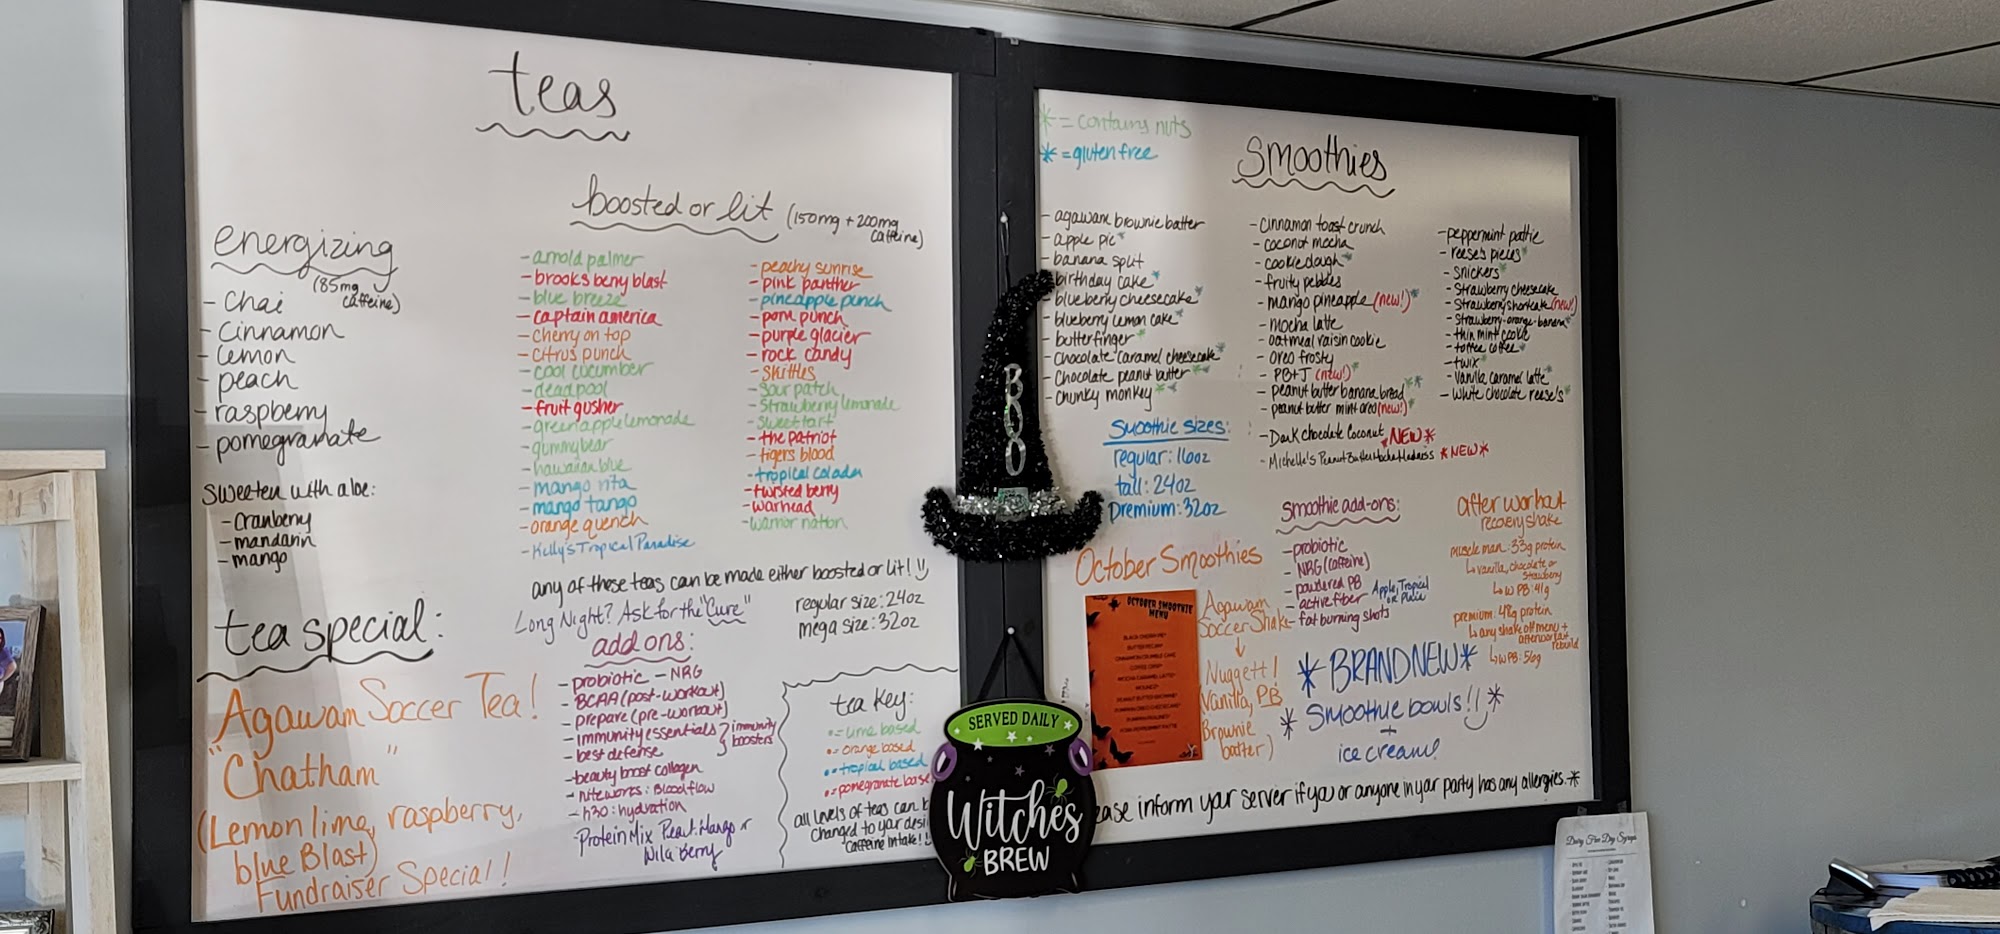 teas
energizing
(85mg
caffeine)
- chai
- cinnamon
- lemon
- peach
- raspberry
- pomegranate
sweeten with aloe:
- cranberry
- mandarin
- mango
boosted or lit (150mg + 200mg
caffeine)
- arnold palmer
- brooks berry blast
- blue breeze
- captain america
- cherry on top
- citrus punch
- cool cucumber
- deadpool
- fruit gusher
- green apple lemonade
- gummybear
- hawaiian blue
- mango rita
- mango tango
- orange quench
- Kelly's Tropical Paradise
- peachy sunrise
- pink panther
- pineapple punch
- pom punch
- purple glacier
- rock candy
- skittles
- sour patch
- strawberry lemonade
- sweet tart
- the patriot
- tigers blood
- tropical colada
- twisted berry
- warhead
- warrior nation
any of these teas can be made either boosted or lit!
Long Night? Ask for the "Cure"
regular size: 24oz
mega size: 32oz
tea special:
Agawam Soccer Tea!
"Chatham"
(Lemon lime, raspberry,
blue Blast)
Fundraiser Special!
add ons:
- probiotic - NRG
- BCAA (post-workout)
- prepare (pre-workout)
- immunity essentials
- best defense
immunity
boosters
- beauty boost collagen
- niteworks: Bloodflow
- h30: hydration
- Protein Mix Peach Mango or
Wild Berry
tea key:
= lime based
= orange based
= tropical based
= pomegranate base
all levels of teas can b
changed to your desi
caffeine intake!!
BOO
SERVED DAILY
Witches
BREW
* = contains nuts
* = gluten free
Smoothies
- agawam brownie batter
- apple pie*
- banana split
- birthday cake*
- blueberry cheesecake*
- blueberry lemon cake*
- butterfinger*
- chocolate caramel cheesecake*
- chocolate peanut butter**
- chunky monkey**
- cinnamon toast crunch
- coconut mocha
- cookie dough*
- fruity pebbles
- mango pineapple (new!)*
- mocha latte
- oatmeal raisin cookie
- oreo frosty
- PB+J (new!)*
- peanut butter banana bread**
- peanut butter mint oreo (new!)*
- Dark chocolate Coconut *NEW*
- Michelle's Peanut Butter Mocha Madness *NEW*
- peppermint pattie
- reese's pieces*
- snickers*
- strawberry cheesecake
- strawberry shortcake (new!)
- strawberry-orange-banana*
- thin mint cookie
- toffee coffee*
- twix*
- vanilla caramel latte*
- white chocolate reese's*
Smoothie sizes:
regular: 16oz
tall: 24oz
premium: 32oz
smoothie add-ons:
- probiotic
- NRG (caffeine)
- powdered PB
- active fiber Apple, Tropical
or Plain
- fat burning shots
after workout
recovery shake
muscle man: 33g protein
↳ vanilla, chocolate or
strawberry
↳ w PB: 41g
premium: 48g protein
↳ any shake off menu +
after workout
rebuild
↳ w PB: 56g
October Smoothies
OCTOBER SMOOTHIE
MENU
Agawam
Soccer Shake
↓
Nuggett!
Vanilla, PB
Brownie
batter)
*BRAND NEW*
* Smoothie bowls!! *
+
ice cream!
ease inform your server if you or anyone in your party has any allergies.*
Dairy Free Dry Syrups